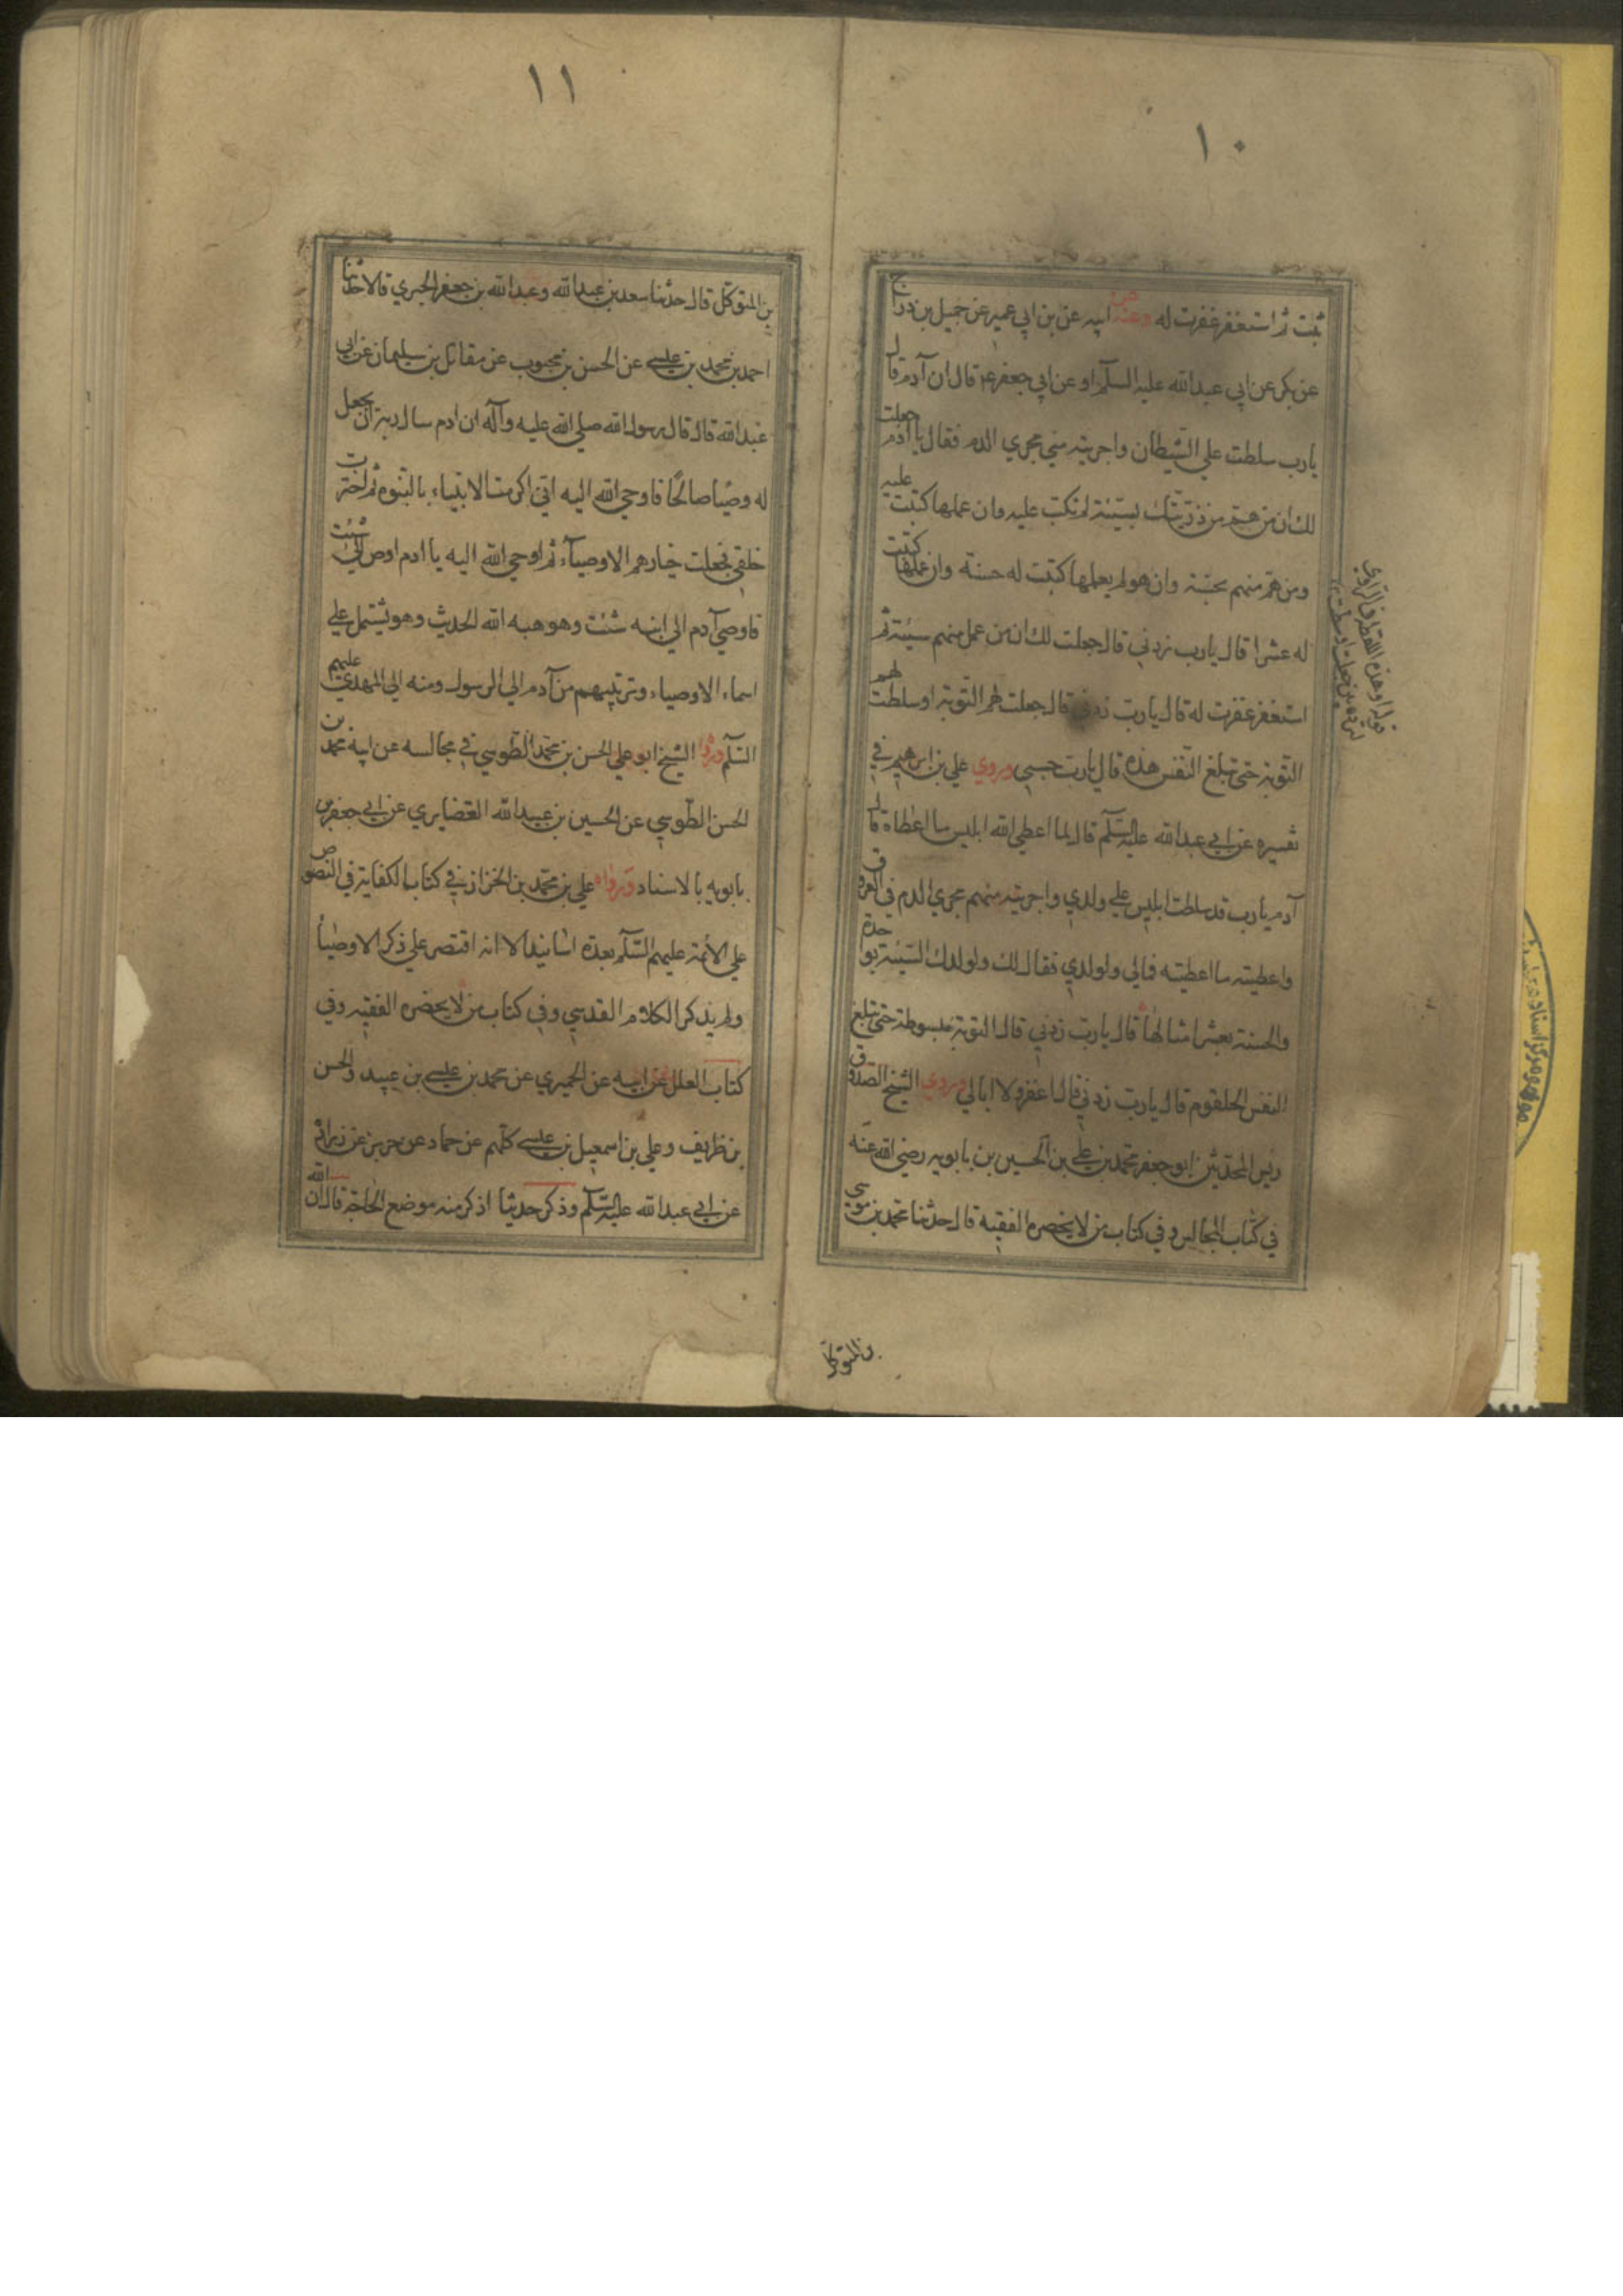 ١٠
تبت ثم استغفر غفرت له وعنه عن ابيه عن بن ابي عمير عن جميل بن دراج
عن بكير عن ابي عبدالله عليه السلم او عن ابي جعفر ع قال ان آدم قال
يارب سلطت علي الشيطان واجريته مني مجري الدم فقال يا آدم جعلت
لك ان من هم من ذريتك بسيئة لم تكتب عليه وان عملها كتبت عليه
ومن هم منهم بحسنة وان هو لم يعملها كتبت له حسنة وان عملها كتبت
له عشرا قال يارب زدني قال جعلت لك ان من عمل منهم سيئة ثم
استغفر غفرت له قال يارب زدني قال جعلت لهم التوبة او سلطت لهم
التوبة حتى تبلغ النفس هذه قال يارب حسبي وروي علي بن ابرهيم في
تفسيره عن ابي عبدالله عليه السلم قال لما اعطي الله ابليس ما اعطاه قال
آدم يارب قد سلطت ابليس علي ولدي واجريته منهم مجري الدم في العروق
واعطيته ما اعطيته فمالي ولولدي فقال لك ولولدك السيئة بواحدة
والحسنة بعشر امثالها قال يارب زدني قال التوبة مبسوطة حتى تبلغ
النفس الحلقوم قال يارب زدني قال اغفر ولا ابالي وروي الشيخ الصدوق
رئيس المحدثين ابو جعفر محمد بن علي بن الحسين بن بابويه رضي الله عنه
في كتاب المجالس وفي كتاب من لا يحضره الفقيه قال حدثنا محمد بن موسي
بن المتوكل
١١
بن المتوكل قال حدثنا سعد بن عبدالله وعبدالله بن جعفر الحميري قالا حدثنا
احمد بن محمد بن عليسي عن الحسن بن محبوب عن مقاتل بن سليمان عن ابي
عبدالله قال قال رسول الله صلي الله عليه وآله ان ادم سال ربه ان يجعل
له وصيا صالحا فاوحي الله اليه اني اكرمت الانبياء بالنبوة ثم اخترت
خلقي فجعلت خيارهم الاوصيآء ثم اوحي الله اليه يا ادم اوص الي شئث
فاوصي آدم الي ابنه شئث وهو هبه الله الحديث وهو يشتمل علي
اسماء الاوصياء وترتيبهم من آدم الي الرسول ومنه الي المهدي عليهم
السلم ورواه الشيخ ابو علي الحسن بن محمد الطوسي في مجالسه عن ابيه محمد بن
الحسن الطوسي عن الحسين بن عبيدالله الغضايري عن ابي جعفر بن
بابويه بالاسناد ورواه علي بن محمد بن الخزاز في كتاب الكفاية في النصوص
علي الائمة عليهم السلم بعدة اسانيد الا انه اقتصر علي ذكر الاوصيا
ولم يذكر الكلام القدسي وفي كتاب من لا يحضره الفقيه وفي
كتاب العلل عن ابيه عن الحميري عن محمد بن عليسي بن عبيد والحسن
بن ظريف وعلي بن اسمعيل بن عليسي كلهم عن حماد عن حريز عن زرارة
عن ابي عبدالله عليه السلم وذكر حديثا اذكر منه موضع الحاجة قال ان الله